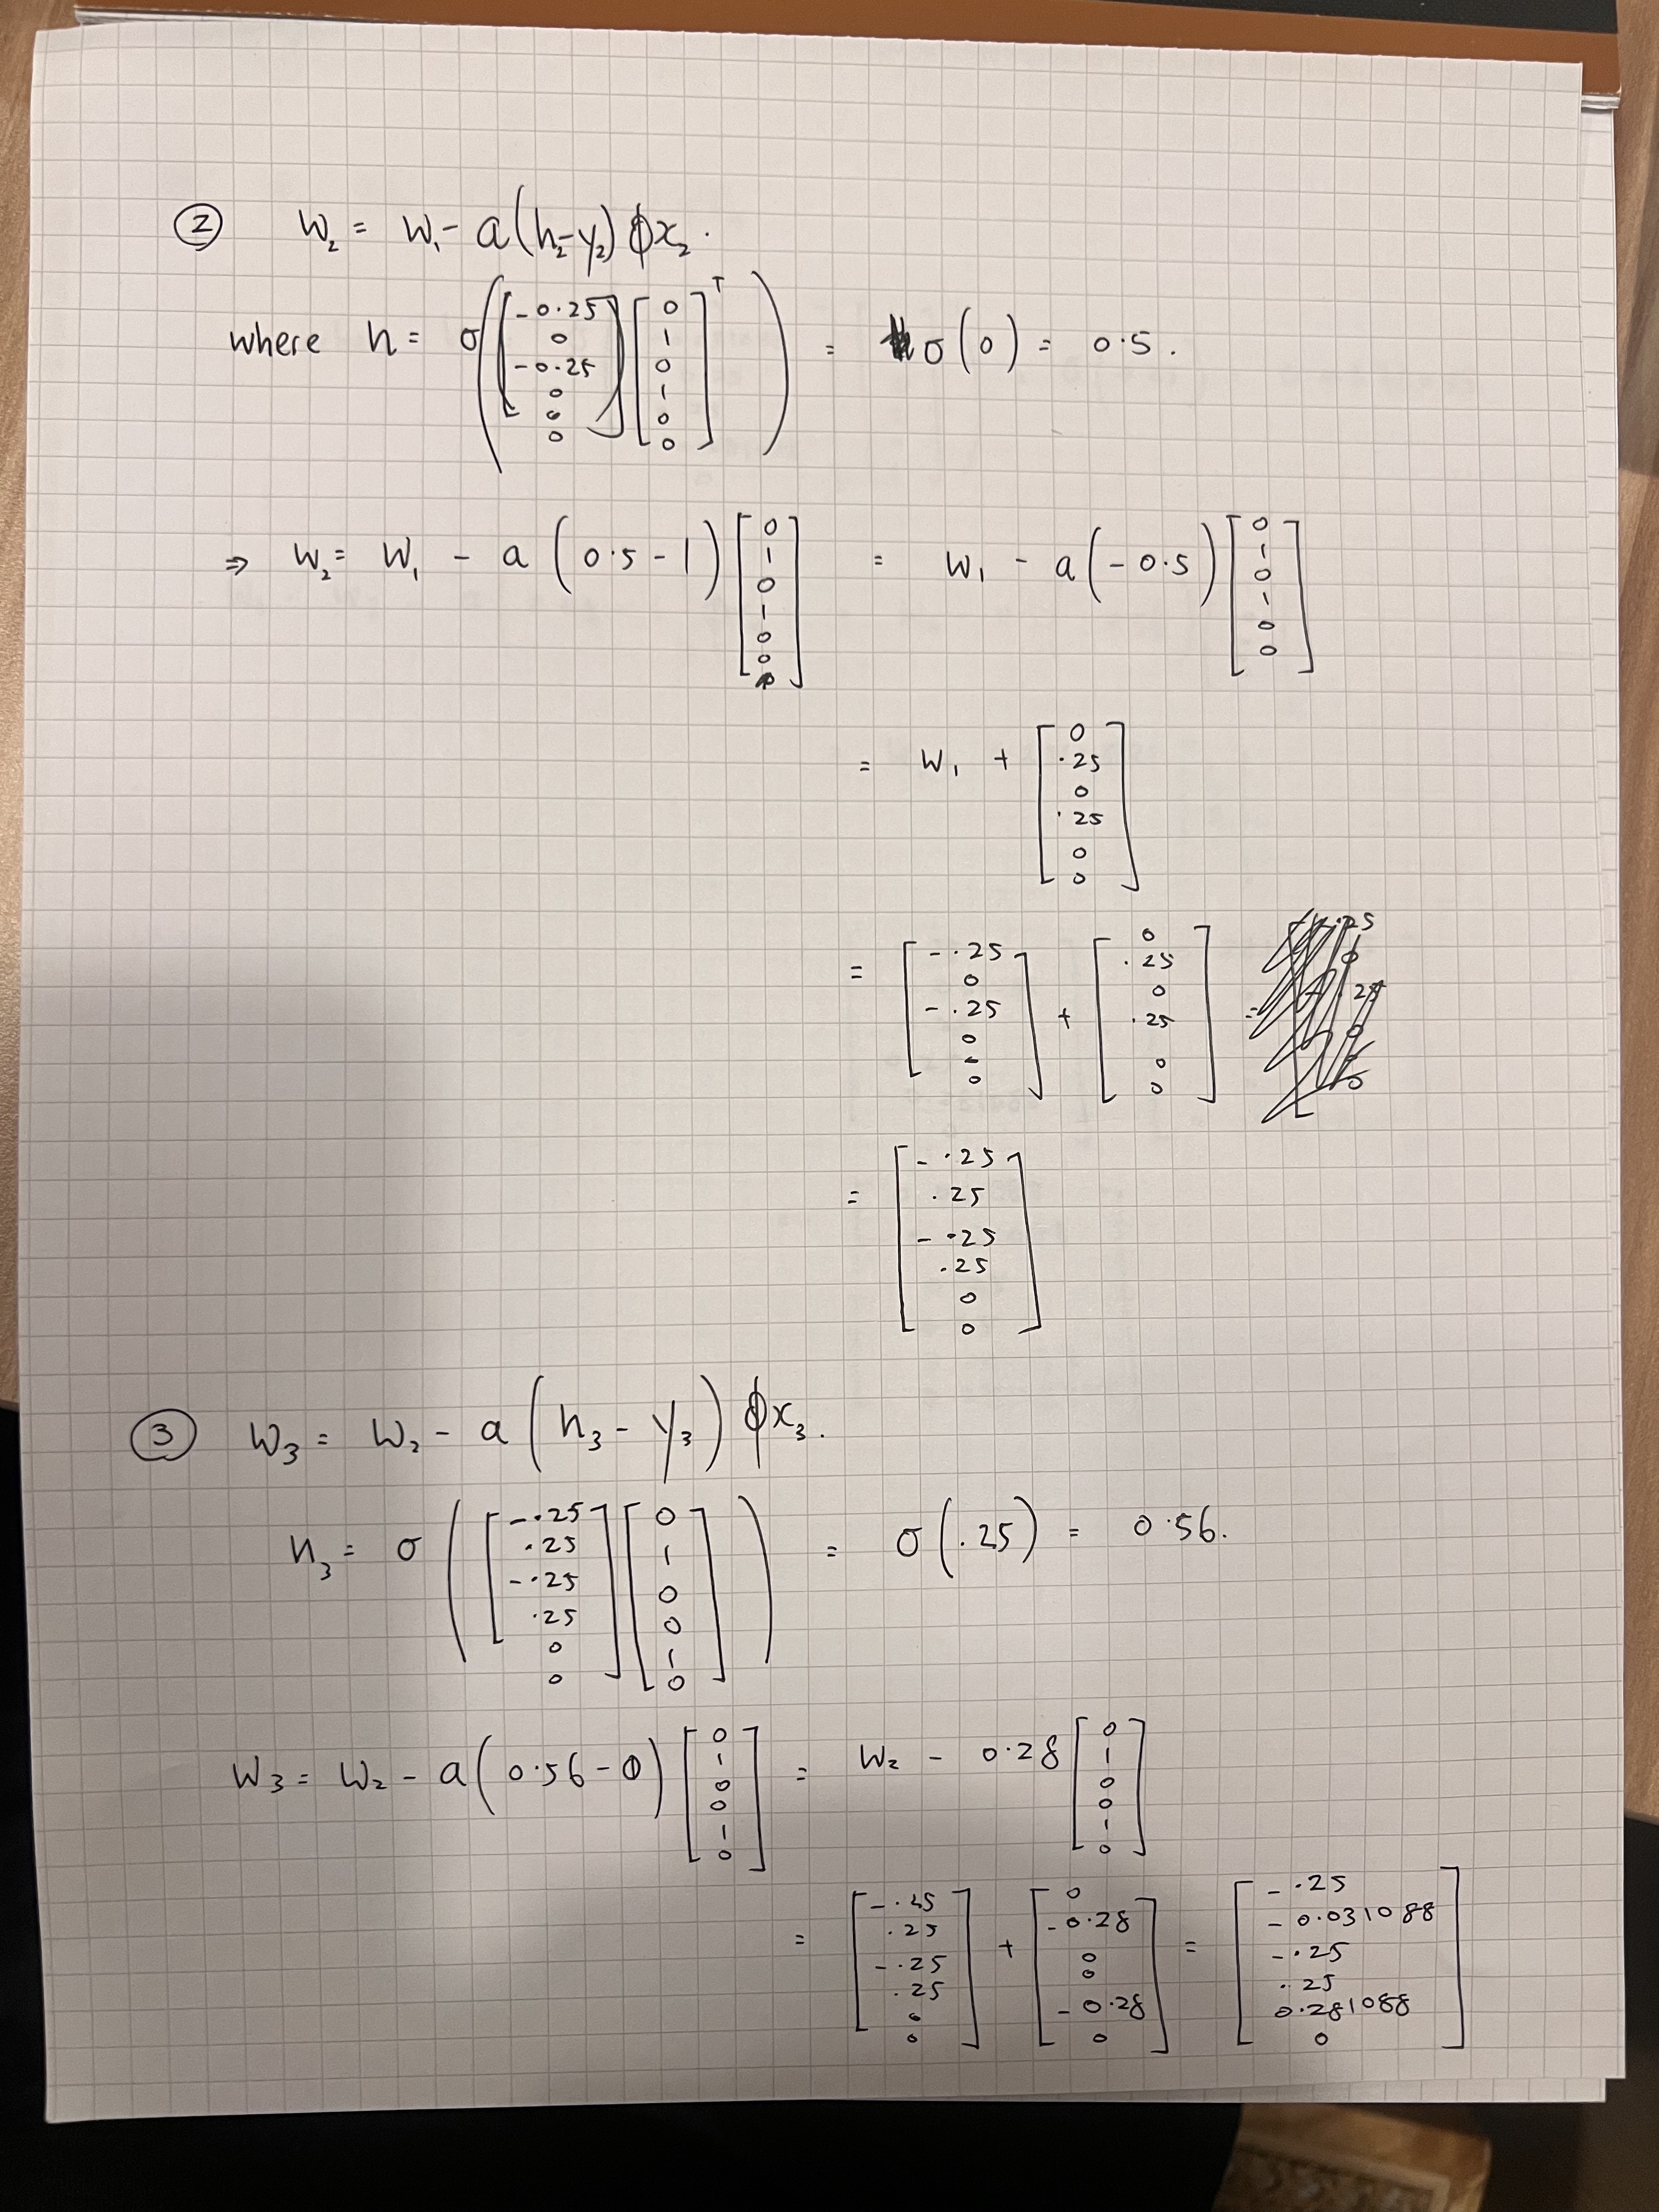 ② W₂ = W₁ - a(h₂-y₂) ϕx₂.
where h = σ([-0.25 0 -0.25 0 0 0] [0 1 0 1 0 0]ᵀ) = σ(0) = 0.5.
⇒ W₂ = W₁ - a(0.5-1) [0 1 0 1 0 0] = W₁ - a(-0.5) [0 1 0 1 0 0]
= W₁ + [0 .25 0 .25 0 0]
= [-.25 0 -.25 0 0 0] + [0 .25 0 .25 0 0]
= [-.25 .25 -.25 .25 0 0]
③ W₃ = W₂ - a(h₃ - y₃) ϕx₃.
h₃ = σ([-.25 .25 -.25 .25 0 0] [0 1 0 0 1 0]) = σ(.25) = 0.56.
W₃ = W₂ - a(0.56-0) [0 1 0 0 1 0] = W₂ - 0.28 [0 1 0 0 1 0]
= [-.25 .25 -.25 .25 0 0] + [0 -0.28 0 0 -0.28 0] = [-.25 -0.031088 -.25 .25 0.281088 0]